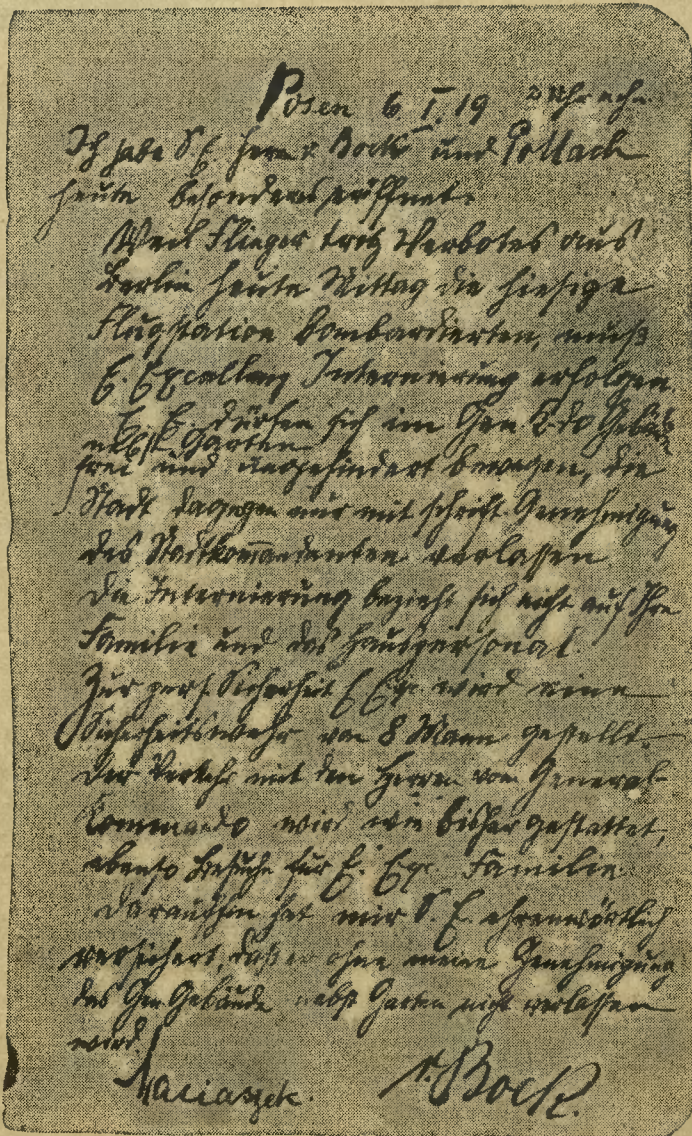 Posen 6 I. 19 2 Uhr nchm.
Ich habe S. E. Herrn v Bock und Pollack
heute besonders eröffnet.
Weil Flieger trotz Verbotes aus
Berlin heute Mittag die hiesige
Flugstation bombardierten, muß
E. Excellenz Internierung erfolgen
E. E. dürfen sich im Gen. Kdo Gebäude
nebst Garten
frei und ungehindert bewegen, die
Stadt dagegen nur mit schriftl. Genehmigung
des Stadtkommandanten verlassen.
Die Internierung bezieht sich nicht auf Ihre
Familie und das Hauspersonal.
Zur pers. Sicherheit E Exz. wird eine
Sicherheitswehr von 8 Mann gestellt.
Der Verkehr mit den Herren vom General-
kommando wird wie bisher gestattet,
ebenso Besuche für E. Exz. Familie.
Daraufhin hat mir S. E. ehrenwörtlich
versichert, daß er ohne meine Genehmigung
das Gen Gebäude nebst Garten nicht verlassen
wird.
Maciaszek. v. Bock.